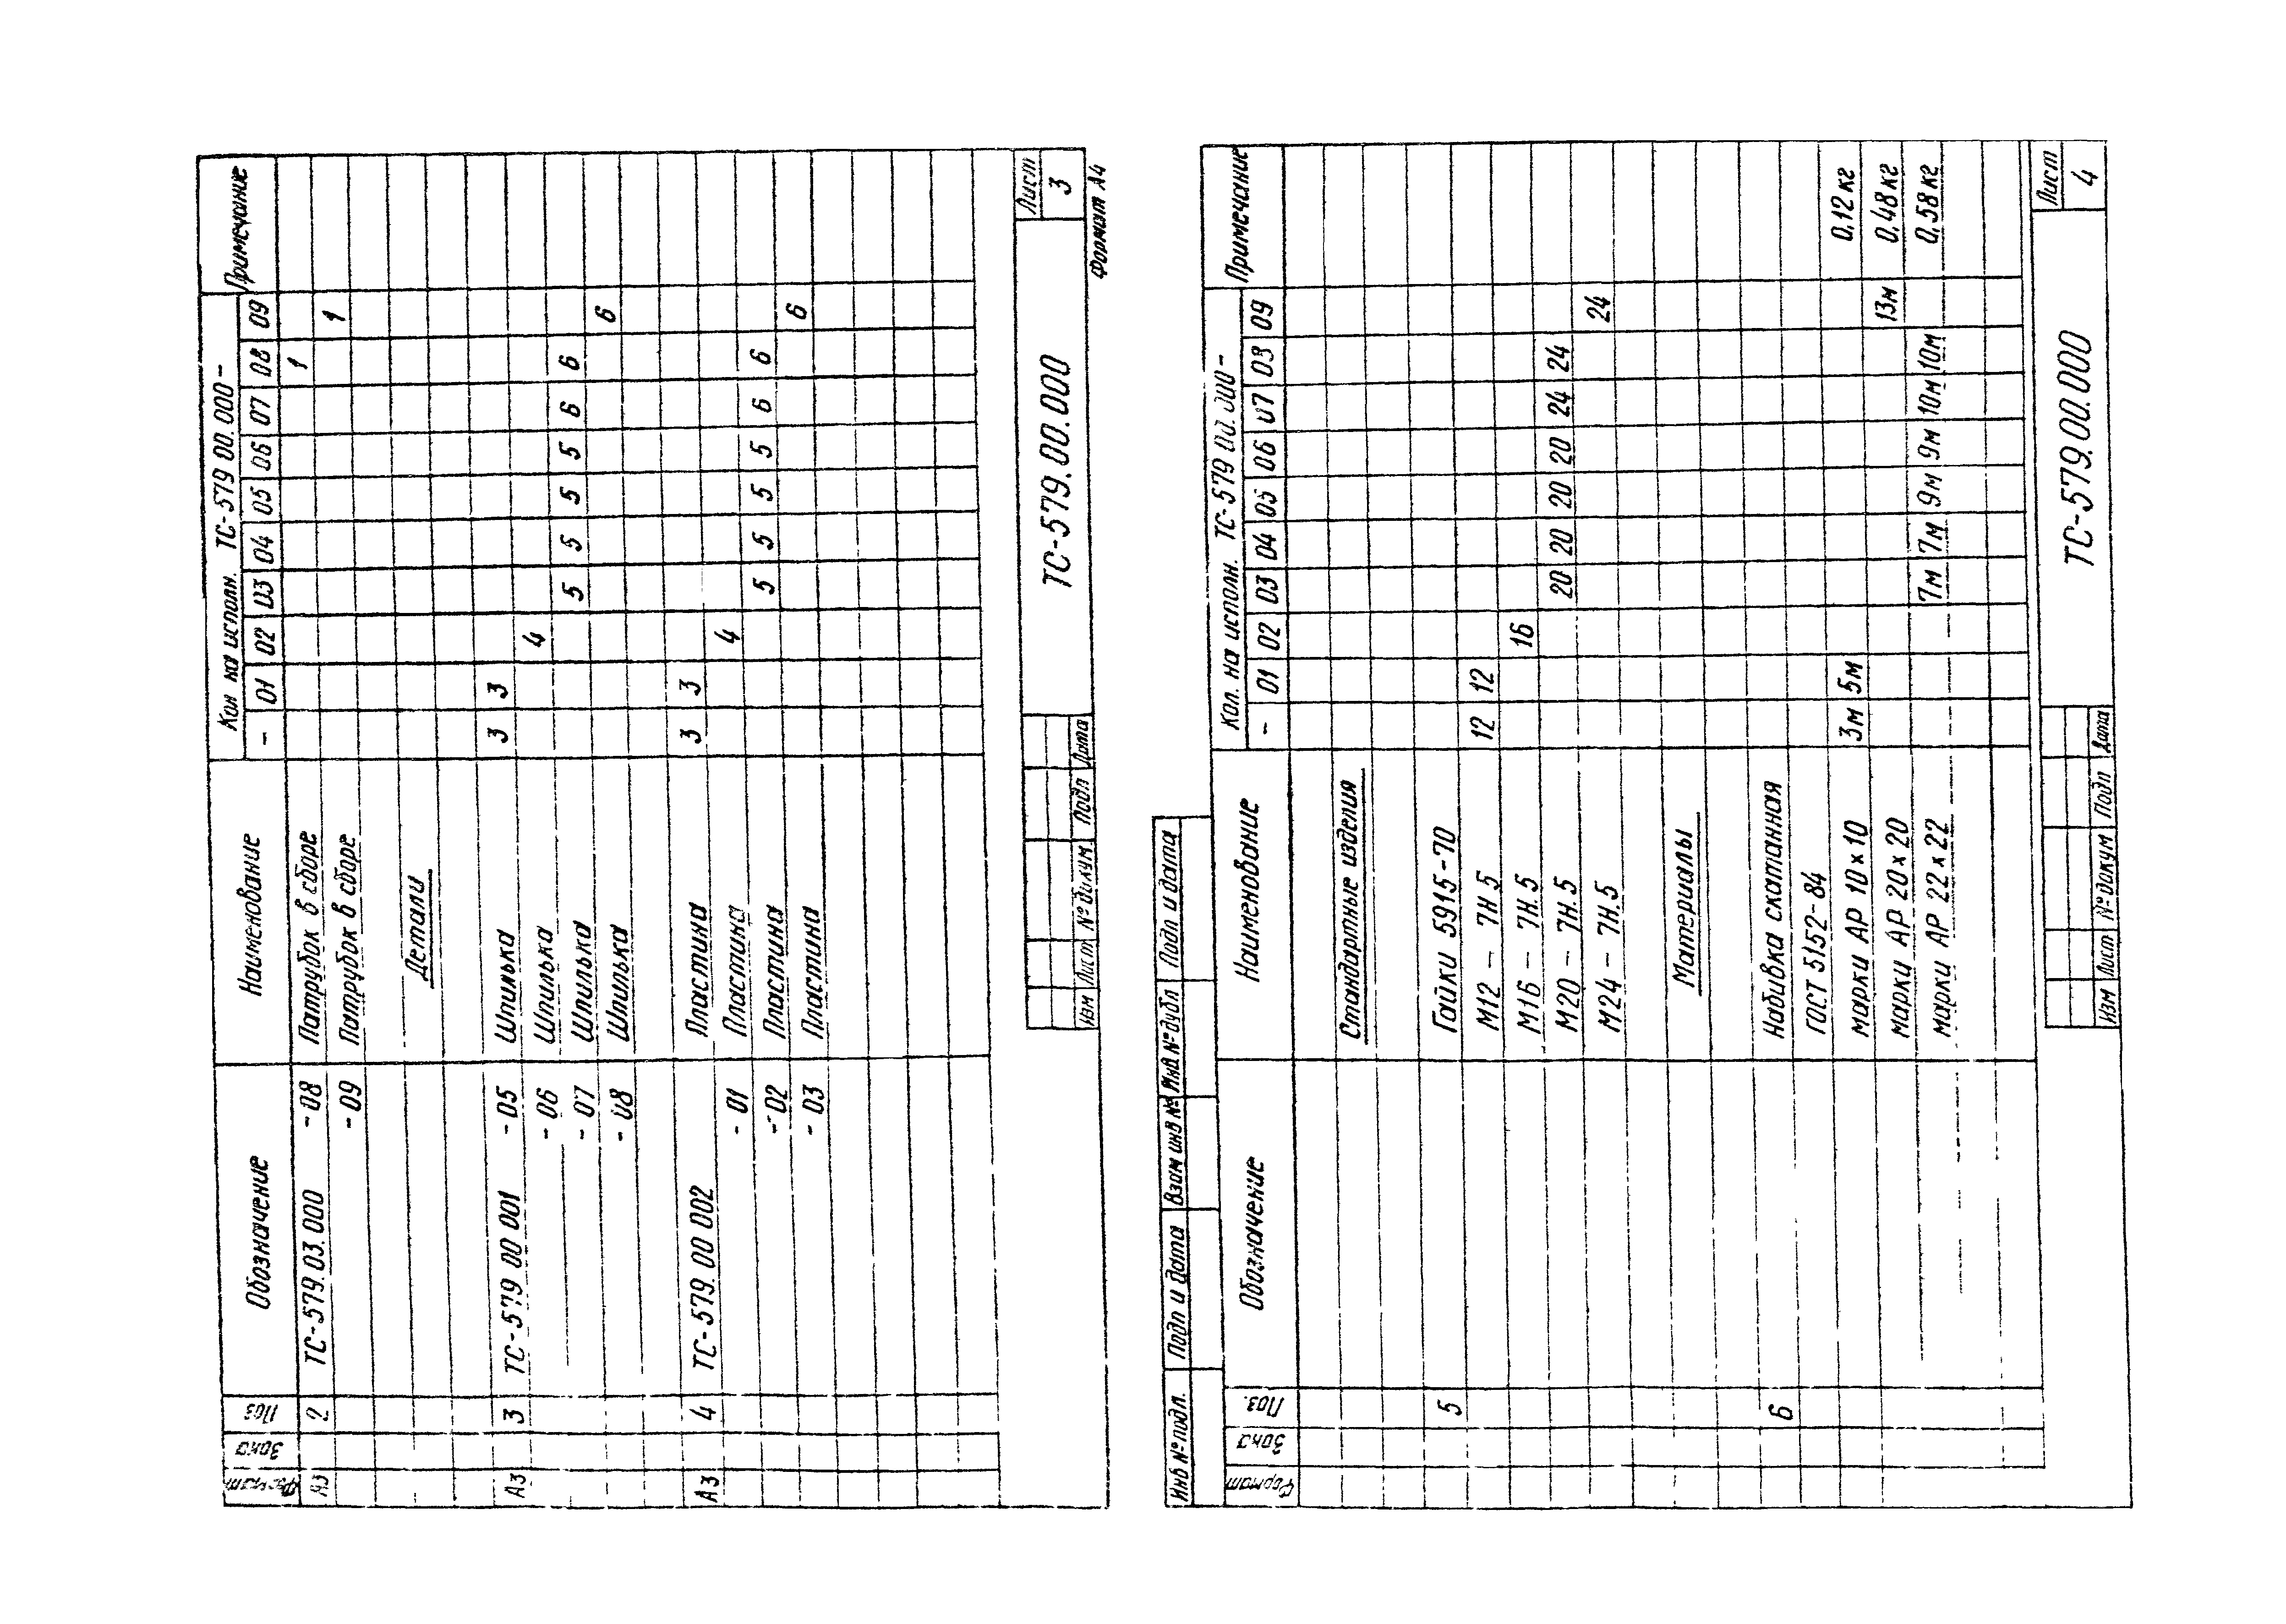 Формат Зона Поз Обозначение Наименование Кол на исполн. ТС-579 00.000 – Примечание
– 01 02 03 04 05 06 07 08 09
А3 2 ТС-579.03.000 -08 Патрубок в сборе 1
-09 Патрубок в сборе 1
Детали
А3 3 ТС-579 00 001 -05 Шпилька 3 3
-06 Шпилька 4
-07 Шпилька 5 5 5 5 6 6
-08 Шпилька 6
А3 4 ТС-579.00 002 Пластина 3 3
-01 Пластина 4
-02 Пластина 5 5 5 5 6 6
-03 Пластина 6
Изм Лист № докум. Подп Дата ТС-579.00.000 Лист 3
Формат А4
Инв № подл. Подп и дата Взам инв № Инв № дубл Подп и дата
Формат Зона Поз. Обозначение Наименование Кол. на исполн. ТС-579 00.000 – Примечание
– 01 02 03 04 05 06 07 08 09
Стандартные изделия
5 Гайки 5915-70
М12 – 7Н 5 12 12
М16 – 7Н.5 16
М20 – 7Н.5 20 20 20 20 24 24
М24 – 7Н.5 24
Материалы
6 Набивка скатанная
ГОСТ 5152-84
марки АР 10×10 3м 5м 0,12 кг
марки АР 20×20 13м 0,48 кг
марки АР 22×22 7м 7м 9м 9м 10м 10м 0,58 кг
Изм Лист № докум Подп Дата ТС-579.00.000 Лист 4